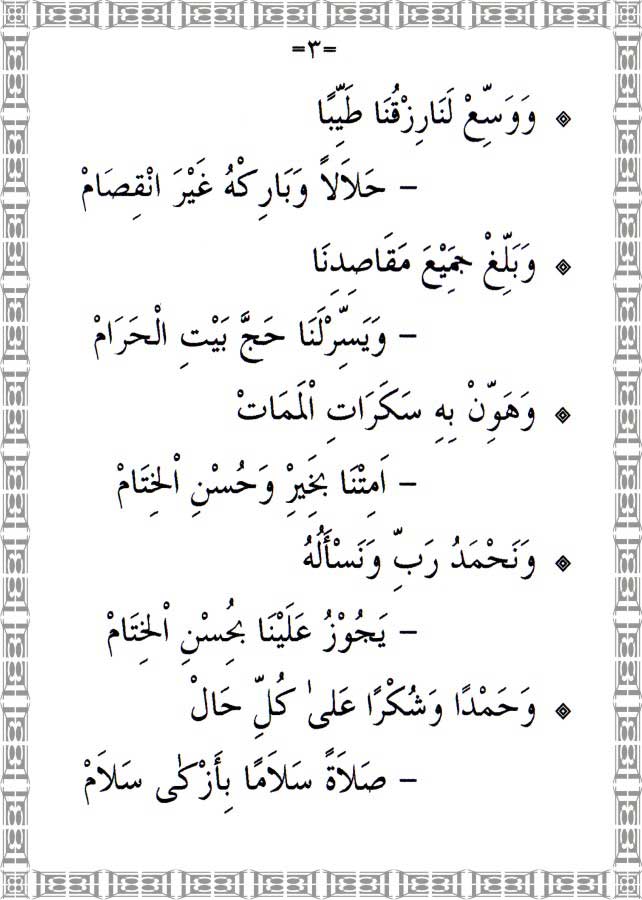 =٣=
وَوَسِّعْ لَنَارِزْقُنَا طَيِّبًا
– حَلَالاً وَبَارِكْهُ غَيْرَ انْقِصَامْ
وَبَلِّغْ جَمِيْعَ مَقَاصِدِنَا
– وَيَسِّرْلَنَا حَجَّ بَيْتِ الْحَرَامْ
وَهَوِّنْ بِهِ سَكَرَاتِ الْمَمَاتْ
– اَمِتْنَا بِخَيِرْ وَحُسْنِ الْخِتَامْ
وَنَحْمَدُ رَبِّ وَنَسْأَلُهُ
– يَجُوْزُ عَلَيْنَا بِحُسْنِ الْخِتَامْ
وَحَمْدًا وَشُكْرًا عَلىٰ كُلِّ حَالْ
– صَلَاةً سَلَامًا بِأَزْكٰى سَلَامْ